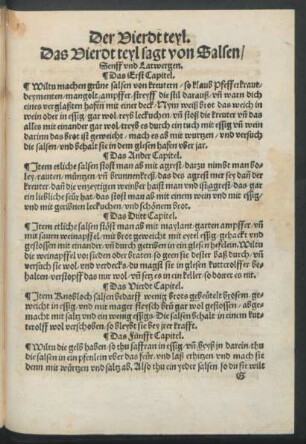 Der Vierdt teyl.
Das Vierdt teyl sagt von Salsen/
Senff vnd Latwergen.
¶ Das Erst Capitel.
¶ Wiltu machen grüne salsen von kreutern/ so klaub Pfefferkraut/
deymenten/mangolt/ampffer/ streyff die stil darauß/ vñ warn dich
eins verglasten hafen mit einer deck/ Nym weiß brot das weich in
wein oder in essig/ gar wol reyb vñ feücht/ vñ stoß die kreuter vñ das
alles mit einander gar wol/ treyb es durch ein tuch mit essig vñ wein
darinn das brot ist geweicht/ mach es ab mit wurtzen/ vnd versuch
die salsen/ vnd behalt sie in dem glesen hafen vber jar.
¶ Das Ander Capitel.
¶ Item etliche salsen stost man als mit agrest/ darzu nimbt man
ley/rauten/ müntzen/ vñ brunnenkreß/ das des agrest mer sey dañ der
kreuter/ dañ die vnzeytigen weinber haist man vnd ist agrest/ das gar
ein lieblich salsen ist/ das stost man als mit einem wein vnd mit essig/
vnd mit geribnen leckuchen/ vnd schönem brot.
¶ Das Dritt Capitel.
¶ Item etliche salsen stöst man als mit garten ampffer/ vñ
mit sauren weinapffel/ mit brot geweicht mit essig/ gehackt vnd
gestossen mit einander/ vñ durch getriben in ein glesen hefelein. Wiltu
die weinapffel vor sieden oder braten so geen sie dester baß durch/ vñ
versuch sie wol/ vnd verdecks/ du magst sie in glesen kutterolffer be-
halten/verstopff das nur wol/ vñ setz es in ein keller so dorret es nit.
¶ Das Vierdt Capitel.
¶ Item Knobloch salsen bedarff wenig brots gebeütelt brosem/
weicht in essig/ vnd mit mager fleysch brü gar wol gestossen/ abge-
macht mit saltz vnd ein wenig essigs/ Die salsen behalt in einem kut-
terolff wol verschoben/ so bleybt sie bey jrer krafft.
¶ Das Fünfft Capitel.
¶ Wiltu die gelb haben/ so thu saffran in essig/ vñ darein/ thu
die salsen in ein pfenlein vber das feür/ vnd laß erhitzen/ vnd mach sie
denn mit würtzen vnd saltz ab. Also thu ein yeder salsen/ so du sie wilt
G